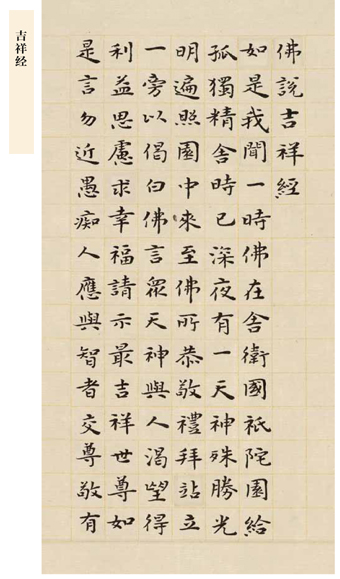 吉祥经
佛說吉祥經
如是我聞一時佛在舍衛國祇陀園給
孤獨精舍時已深夜有一天神殊勝光
明遍照園中來至佛所恭敬禮拜站立
一旁以偈白佛言眾天神與人渴望得
利益思慮求幸福請示最吉祥世尊如
是言勿近愚痴人應與智者交尊敬有